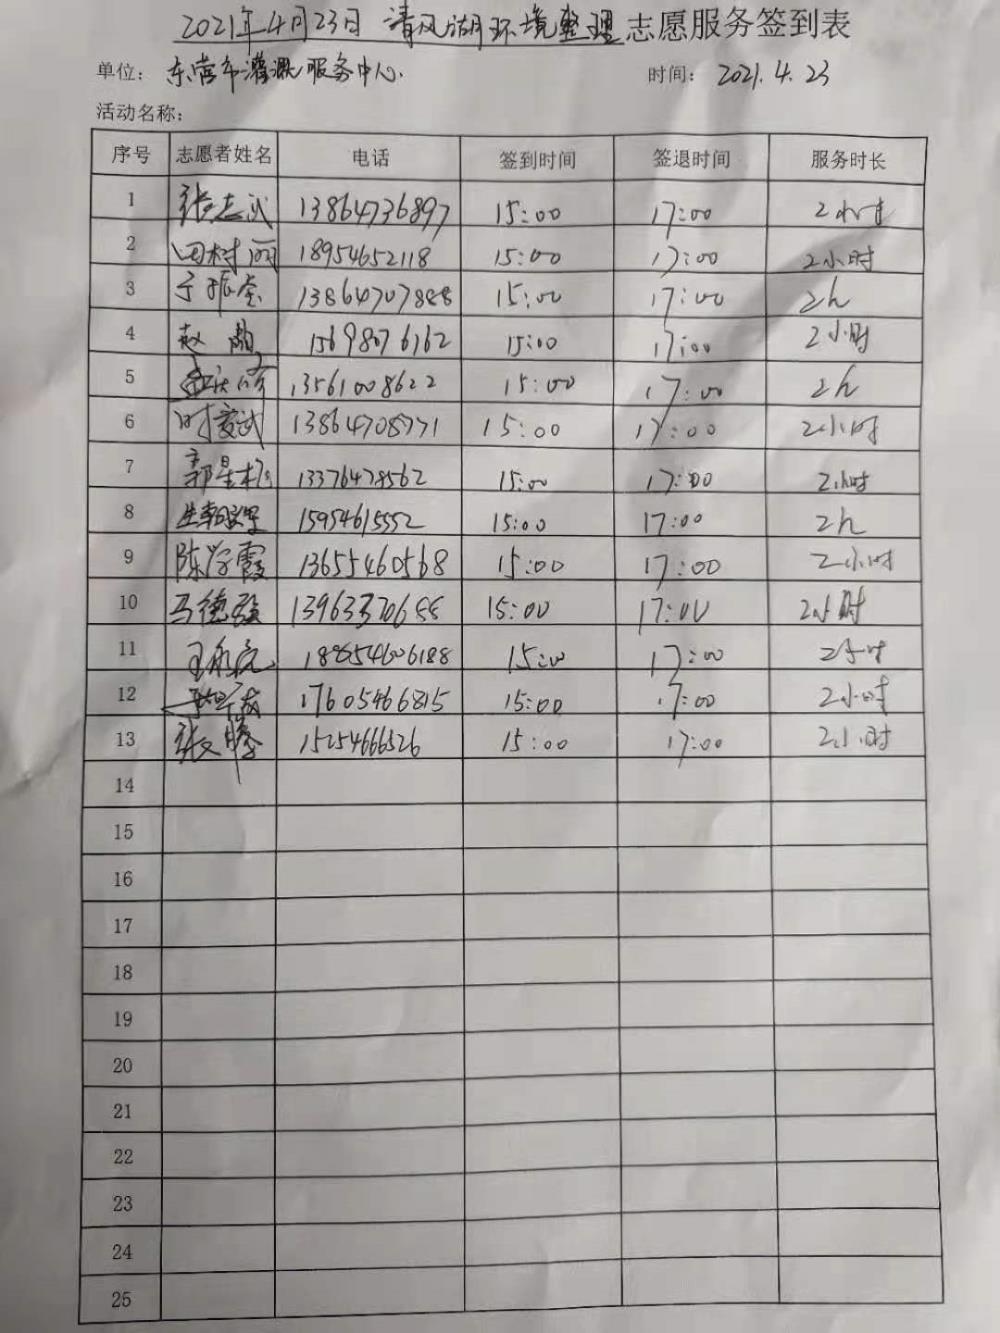 2021年4月23日 清风湖环境整理志愿服务签到表
单位： 东营市灌溉服务中心. 时间： 2021.4.23
活动名称：
序号 志愿者姓名 电话 签到时间 签退时间 服务时长
1 张志武 13864736897 15:00 17:00 2小时
2 田树丽 18954652118 15:00 17:00 2小时
3 于振堂 13864707888 15:00 17:00 2h
4 赵 15698076162 15:00 17:00 2小时
5 13561008622 15:00 17:00 2h
6 时爱武 13864708771 15:00 17:00 2小时
7 郭星 13376478562 15:00 17:00 2小时
8 15954615552 15:00 17:00 2h
9 陈学霞 13655460568 15:00 17:00 2小时
10 马德强 13963370688 15:00 17:00 2小时
11 王 18854606188 15:00 17:00 2小时
12 17605466815 15:00 17:00 2小时
13 张文腾 15254666526 15:00 17:00 2小时
14
15
16
17
18
19
20
21
22
23
24
25